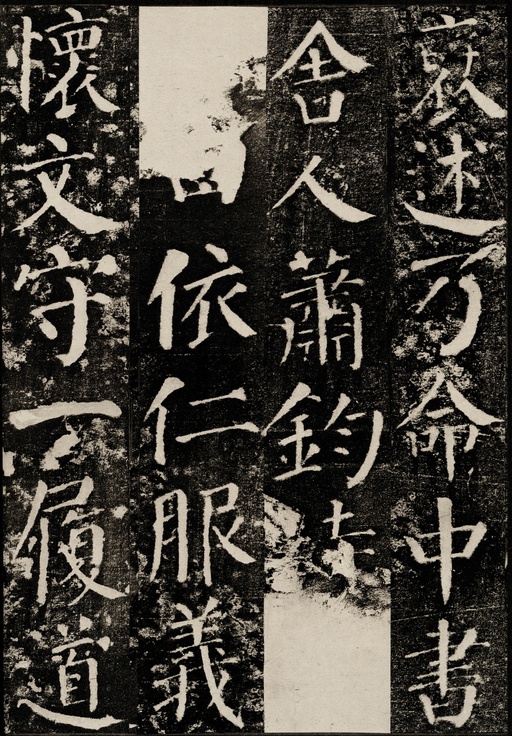 述乃命中書
舍人蕭鈞
依仁服義
懷文守一履道